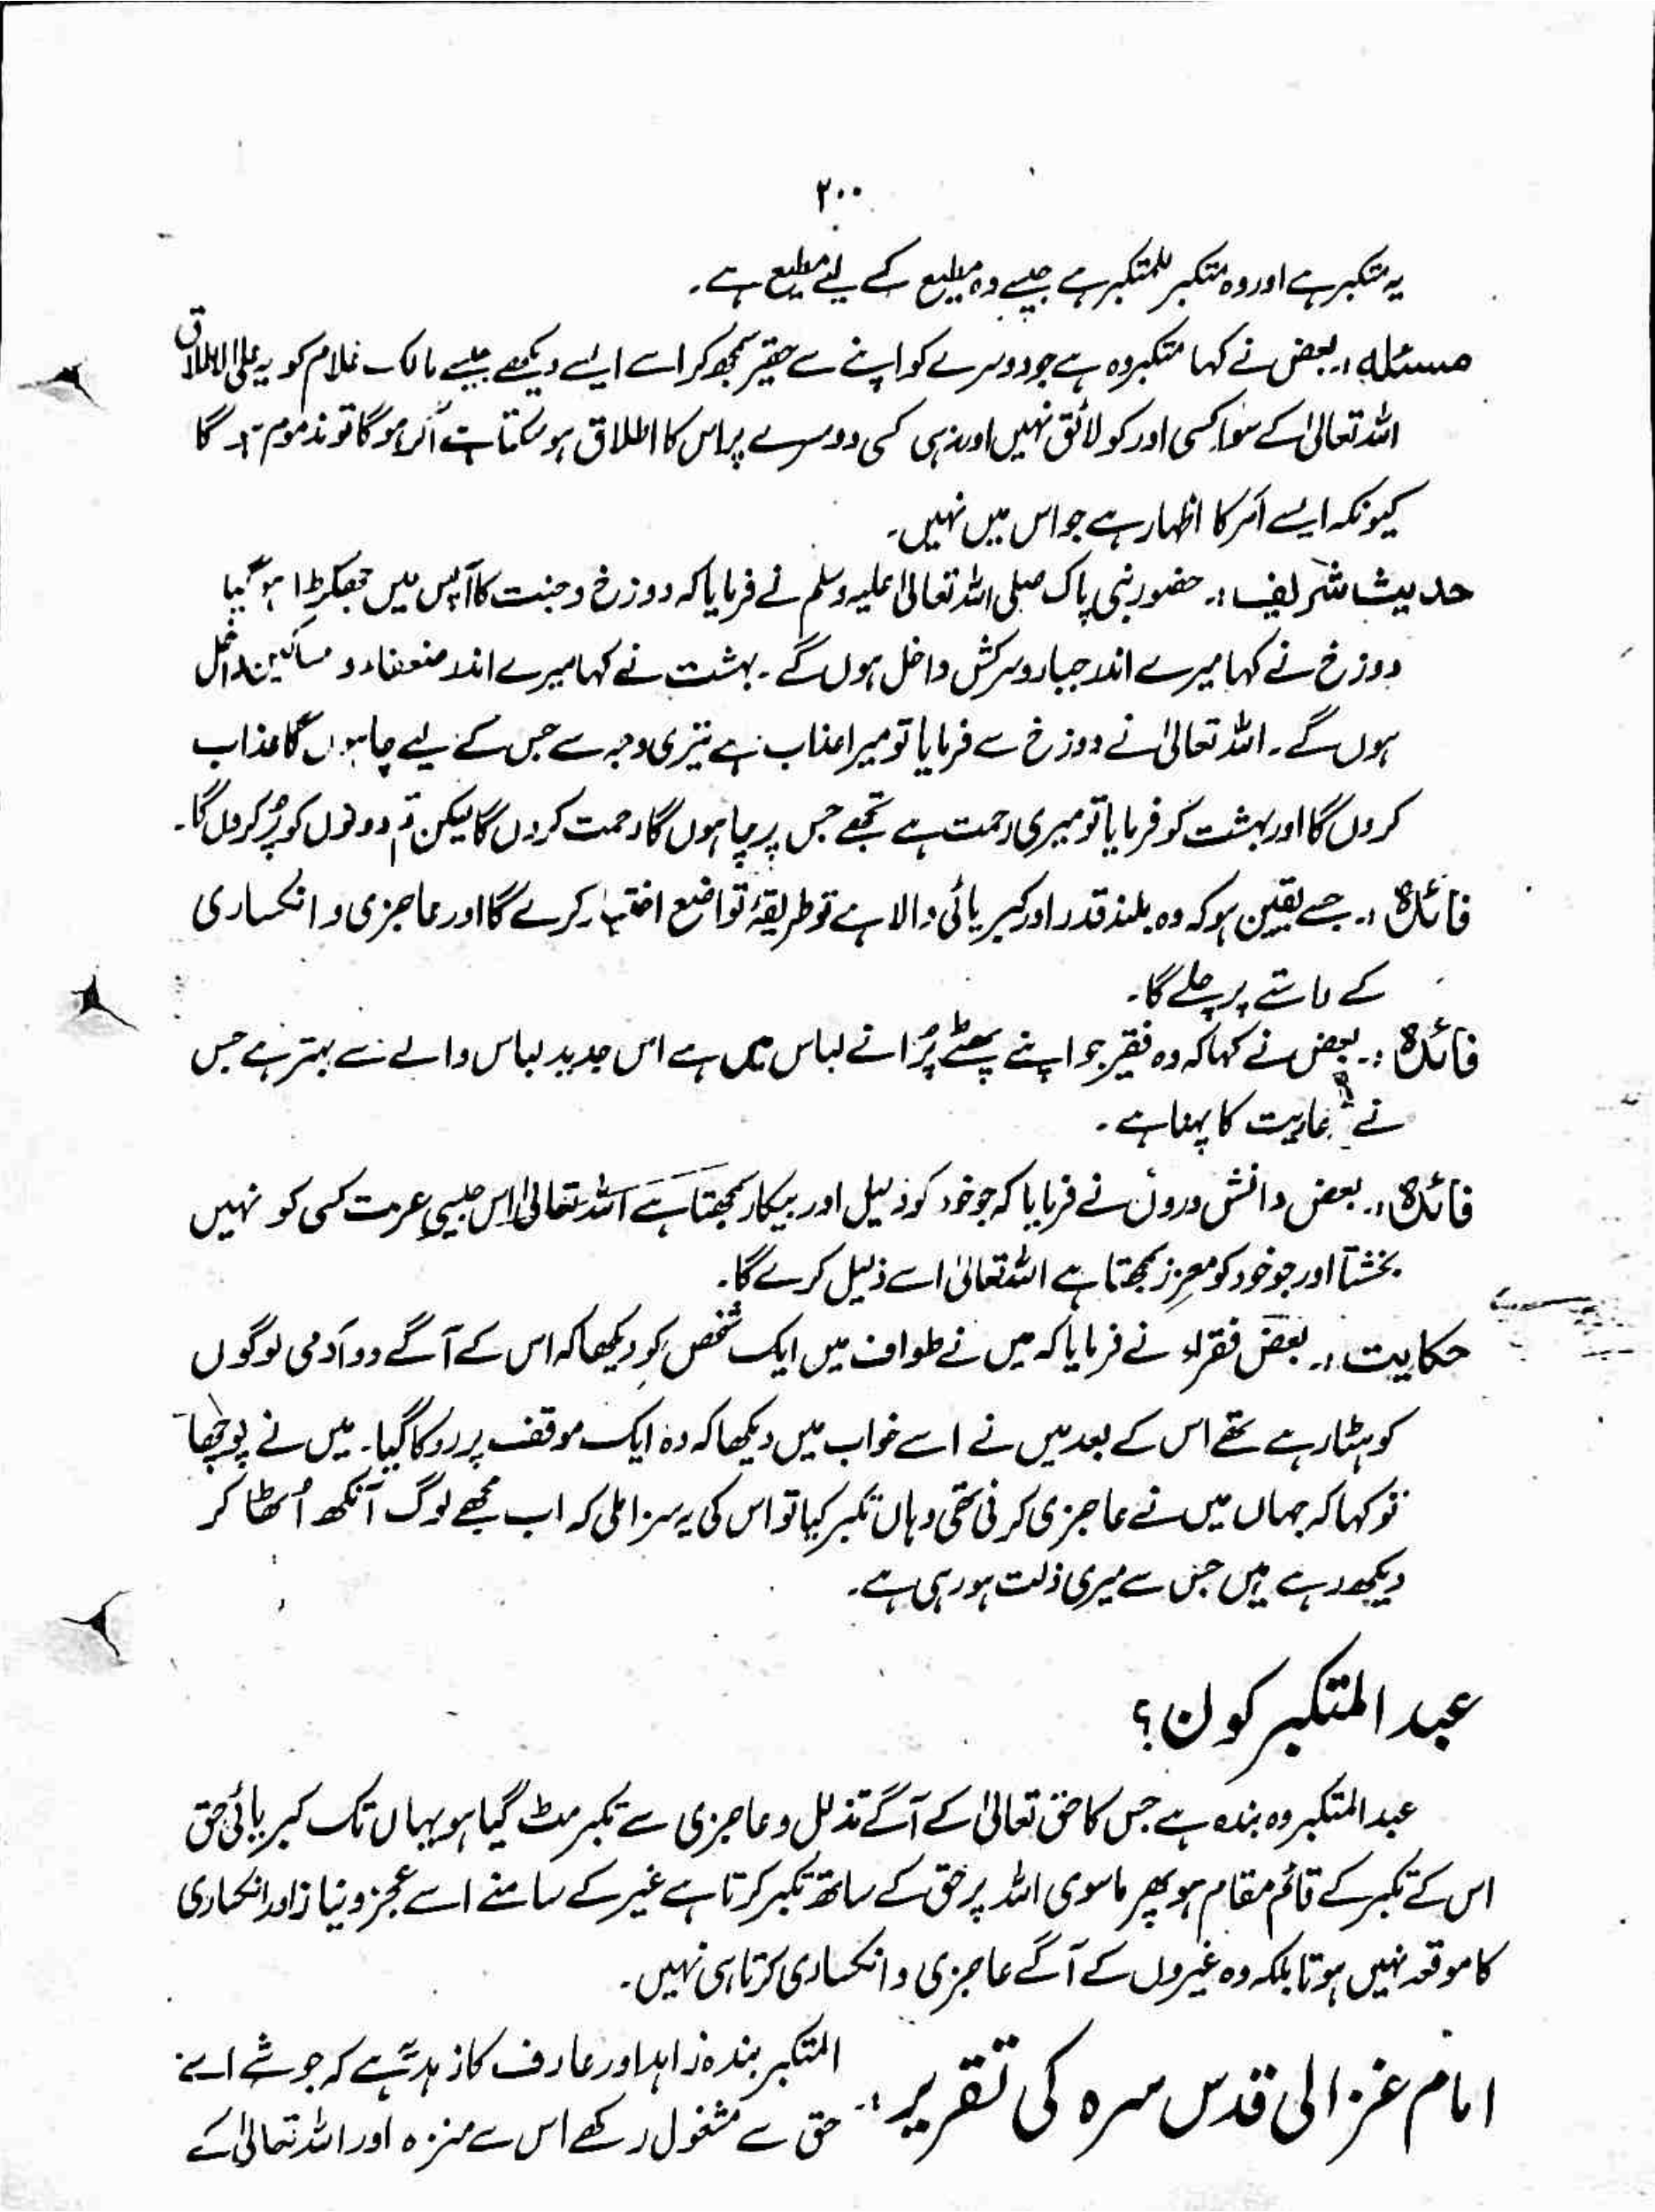 ۲۰۰
یہ متکبر ہے اور وہ متکبر للمتکبر ہے جیسے وہ مطیع کے لیے مطیع ہے۔
مسئلہ :۔ بعض نے کہا متکبر وہ ہے جو دوسرے کو اپنے سے حقیر سمجھ کر اسے ایسے دیکھے جیسے مالک غلام کو یہ علی الاطلاق
اللہ تعالیٰ کے سوا کسی اور کو لائق نہیں اور نہ ہی کسی دوسرے پر اس کا اطلاق ہو سکتا ہے اگر ہو گا تو مذموم ہو گا
کیونکہ ایسے امر کا اظہار ہے جو اس میں نہیں۔
حدیث شریف :۔ حضور نبی پاک صلی اللہ تعالیٰ علیہ وسلم نے فرمایا کہ دوزخ و جنت کا آپس میں جھگڑا ہو گیا
دوزخ نے کہا میرے اندر جبار و سرکش داخل ہوں گے۔ بہشت نے کہا میرے اندر ضعفاء و مساکین داخل
ہوں گے۔ اللہ تعالیٰ نے دوزخ سے فرمایا تو میرا عذاب ہے تیری وجہ سے جس کے لیے چاہوں گا عذاب
کروں گا اور بہشت کو فرمایا تو میری رحمت ہے تجھے جس پر چاہوں گا رحمت کروں گا لیکن تم دونوں کو پُر کروں گا۔
فائدہ :۔ جسے یقین ہو کہ وہ بلند قدر اور کبریائی والا ہے تو طریقۂ تواضع اختیار کرے گا اور عاجزی و انکساری
کے راستے پر چلے گا۔
فائدہ :۔ بعض نے کہا کہ وہ فقیر جو اپنے پھٹے پُرانے لباس میں ہے اس جدید لباس والے سے بہتر ہے جس
نے عاریت کا پہنا ہے۔
فائدہ :۔ بعض دانش وروں نے فرمایا کہ جو خود کو ذلیل اور بیکار سمجھتا ہے اللہ تعالیٰ اس جیسی عزت کسی کو نہیں
بخشتا اور جو خود کو معزز سمجھتا ہے اللہ تعالیٰ اسے ذلیل کرے گا۔
حکایت :۔ بعض فقراء نے فرمایا کہ میں نے طواف میں ایک شخص کو دیکھا کہ اس کے آگے دو آدمی لوگوں
کو ہٹا رہے تھے اس کے بعد میں نے اسے خواب میں دیکھا کہ وہ ایک موقف پر روکا گیا۔ میں نے پوچھا
تو کہا کہ جہاں میں نے عاجزی کرنی تھی وہاں تکبر کیا تو اس کی یہ سزا ملی کہ اب مجھے لوگ آنکھ اُٹھا کر
دیکھ رہے ہیں جس سے میری ذلت ہو رہی ہے۔
عبد المتکبر کون؟
عبد المتکبر وہ بندہ ہے جس کا حق تعالیٰ کے آگے تذلل و عاجزی سے تکبر مٹ گیا ہو یہاں تک کبریائی حق
اس کے تکبر کے قائم مقام ہو پھر ماسوی اللہ پر حق کے ساتھ تکبر کرتا ہے غیر کے سامنے اسے عجز و نیاز اور انکساری
کا موقعہ نہیں ہوتا بلکہ وہ غیروں کے آگے عاجزی و انکساری کرتا ہی نہیں۔
امام غزالی قدس سرہ کی تقریر :۔ المتکبر بندہ زاہد اور عارف کا زہد یہ ہے کہ جو شے اسے
حق سے مشغول رکھے اس سے منزہ اور اللہ تعالیٰ کے